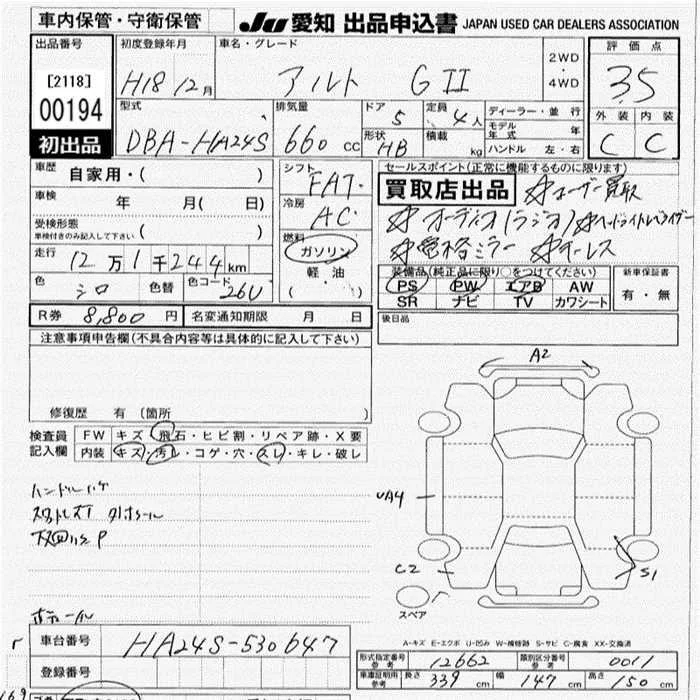 車内保管・守衛保管
JU 愛知 出品申込書 JAPAN USED CAR DEALERS ASSOCIATION
出品番号 初度登録年月 車名・グレード 2WD ・ 4WD 評価点
[2118] H18 12月 アルト GⅡ 3.5
00194 型式 排気量 ドア 5 定員 4人 ディーラー・並行 外装 内装
初出品 DBA-HA24S 660 CC 形状 HB 積載 kg モデル年式 年 C C
ハンドル 左・右
車歴 自家用・( ) シフト FAT セールスポイント(正常に機能するものに限ります)
車検 年 月( 日) 冷房 AC 買取店出品 ☆ユーザー買取
受検形態 車検付きのみ記入して下さい ( ) ☆オーディオ(ラジオ)☆ヘッドライトレベライザー
走行 12万1千244km 燃料 ガソリン ☆電格ミラー ☆キーレス
色 シロ 色替 色コード 26U 軽油 ( ・ ) 装備品(純正品に限り○をつけてください) 新車保証書
PS PW エアB AW 有・無
SR ナビ TV カワシート
R券 8,800円 名変通知期限 月 日 後日品
注意事項申告欄(不具合内容等は具体的に記入して下さい)
修復歴 有(箇所 )
検査員記入欄 FW キズ・飛石・ヒビ割・リペア跡・X要
内装 キズ・汚レ・コゲ・穴・スレ・キレ・破レ
A2
UA4
C2
S1
スペア
A-キズ E-エクボ U-凹み W-補修跡 S-サビ C-腐食 XX-交換済
車台番号 HA24S-530647
登録番号
形式指定番号 参考 12662 類別区分番号 参考 0011
車庫証明用 参考 長さ 339cm 幅 147cm 高さ 150cm